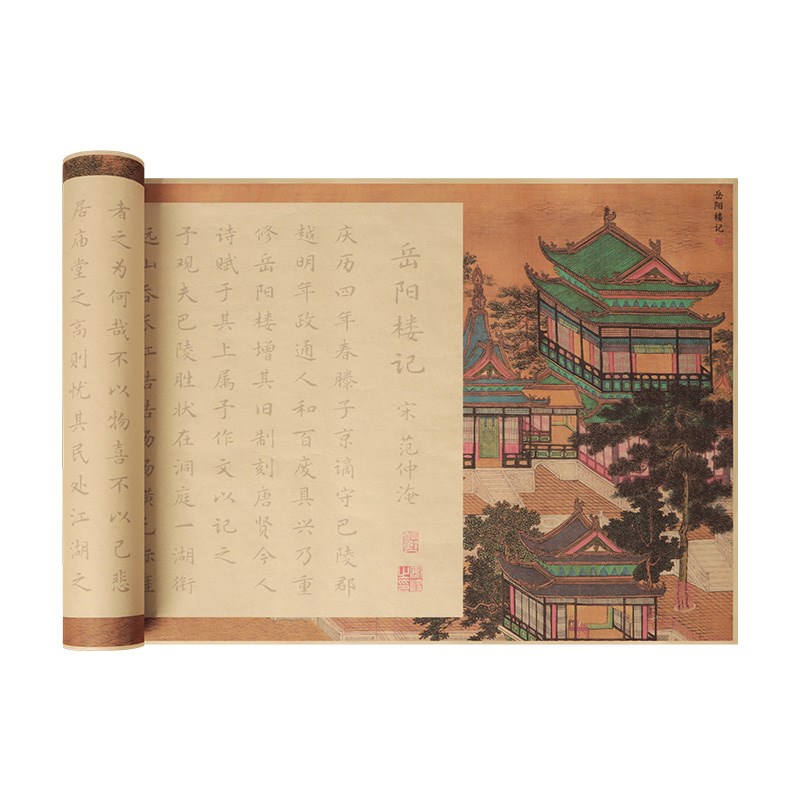 岳阳楼记
岳阳楼记
宋 范仲淹
庆历四年春滕子京谪守巴陵郡
越明年政通人和百废具兴乃重
修岳阳楼增其旧制刻唐贤今人
诗赋于其上属予作文以记之
予观夫巴陵胜状在洞庭一湖衔
远山吞长江浩浩汤汤横无际涯
者之为何哉不以物喜不以己悲
居庙堂之高则忧其民处江湖之